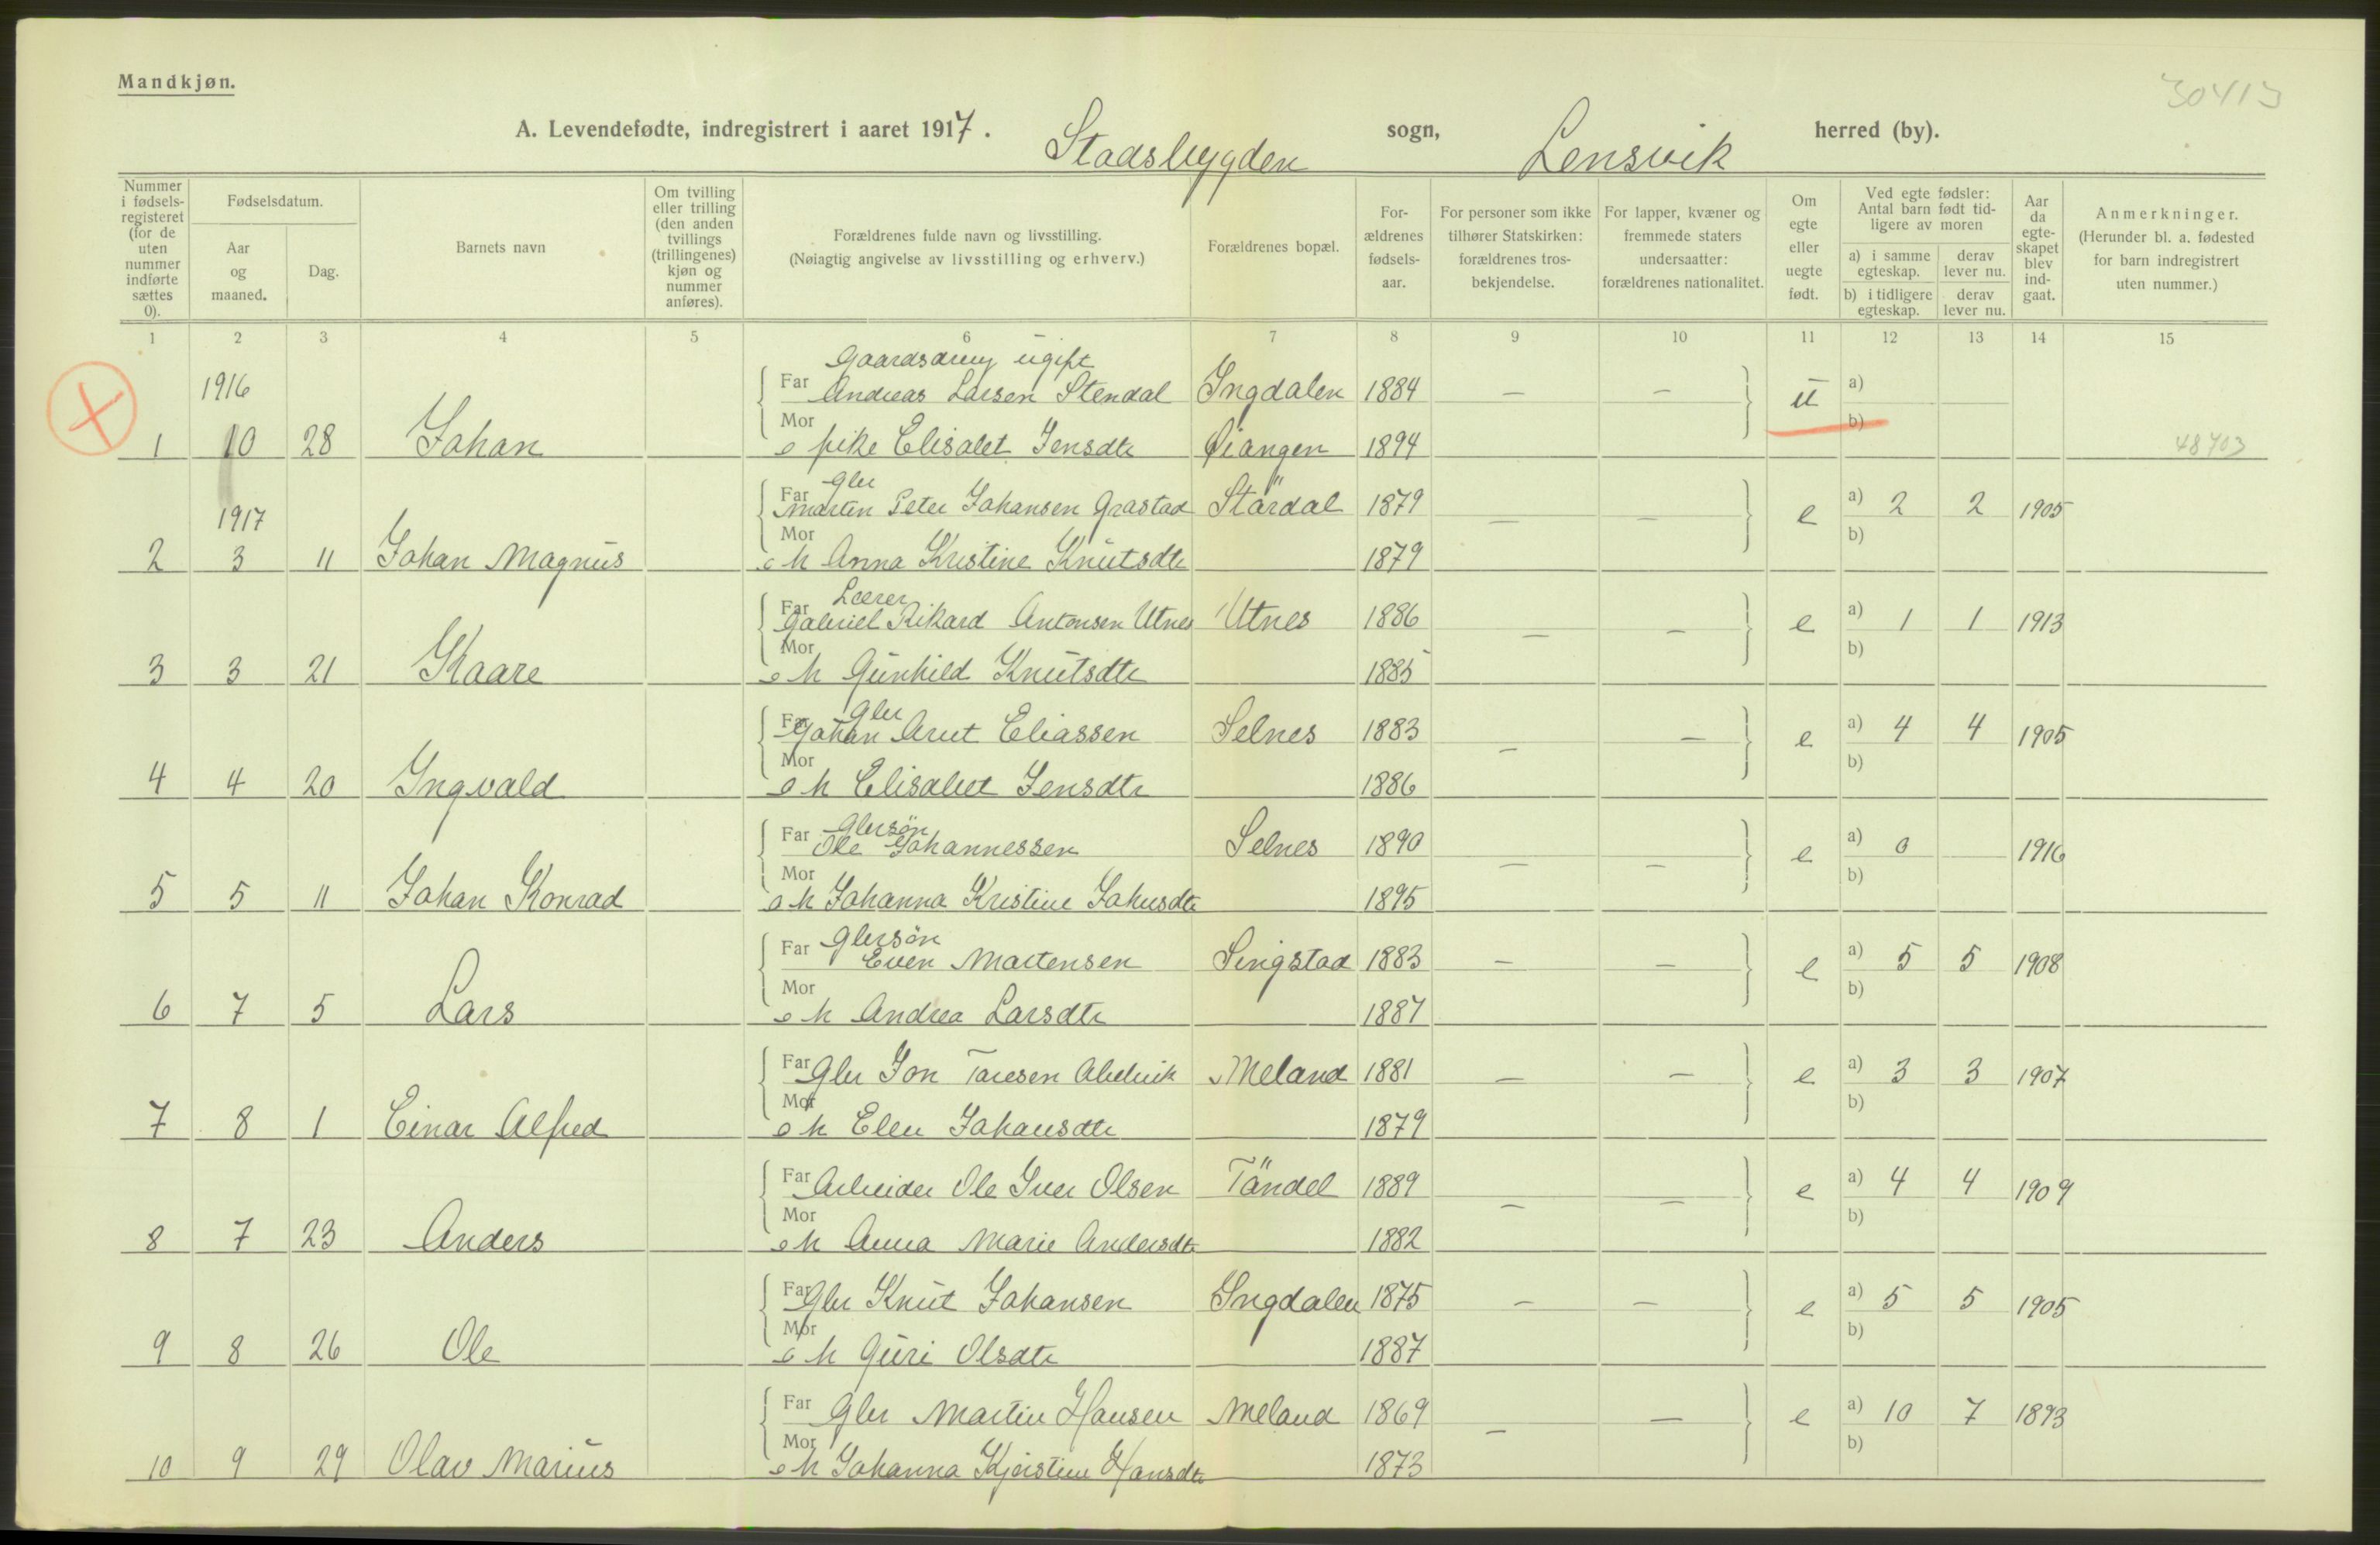 Mandkjøn.
30413
A. Levendefødte, indregistrert i aaret 1917. Stadsbygden sogn, Lensvik herred (by).
Nummer i fødsels-registeret (for de uten nummer indførte sættes 0).
Fødselsdatum.
Aar og maaned.
Dag.
Barnets navn
Om tvilling eller trilling (den anden tvillings (trillingenes) kjøn og nummer anføres).
Forældrenes fulde navn og livsstilling.
(Nøiagtig angivelse av livsstilling og erhverv.)
Forældrenes bopæl.
For-ældrenes fødsels-aar.
For personer som ikke tilhører Statskirken: forældrenes tros-bekjendelse.
For lapper, kvæner og fremmede staters undersaatter: forældrenes nationalitet.
Om egte eller uegte født.
Ved egte fødsler: Antal barn født tid-ligere av moren
a) i samme egteskap. derav lever nu.
b) i tidligere egteskap. derav lever nu.
Aar da egte-skapet blev ind-gaat.
Anmerkninger.
(Herunder bl. a. fødested for barn indregistrert uten nummer.)
1 2 3 4 5 6 7 8 9 10 11 12 13 14 15
Gaardsdreng ugift
1916 Far Andreas Larsen Stendal Ingdalen 1884 — — u a)
Mor b)
1 10 28 Johan pike Elisabet Jensdtr Øiangen 1894 48703
Gbr
Far Martin Peter Johansen Grastad Stårdal 1879 — — e a) 2 2 1905
1917 Mor b)
2 3 11 Johan Magnus o h Anna Kristine Knutsdtr 1879
Lærer
Far Gabriel Rikard Antonsen Utnes Utnes 1886 — — e a) 1 1 1913
Mor b)
3 3 21 Kaare o h Gunhild Knutsdtr 1885
Gbr
Far Johan Arnt Eliassen Selnes 1883 — — e a) 4 4 1905
Mor b)
4 4 20 Ingvald o h Elisabet Jensdtr 1886
Gbrsøn
Far Ole Johannessen Selnes 1890 — — e a) 0 1916
Mor b)
5 5 11 Johan Konrad o h Johanna Kristine Johnsdtr 1895
Gbrsøn
Far Even Martensen Singstad 1883 — — e a) 5 5 1908
Mor b)
6 7 5 Lars o h Andrea Larsdtr 1887
Far Gbr Jon Toresen Meland 1881 — — e a) 3 3 1907
Mor b)
7 8 1 Einar Alfred o h Elen Johansdtr 1879
Far Arbeider Ole Iver Olsen Tändel 1889 — — e a) 4 4 1909
Mor b)
8 7 23 Anders o h Anna Marie Andersdtr 1882
Far Gbr Knut Johansen Ingdalen 1875 — — e a) 5 5 1905
Mor b)
9 8 26 Ole o h Guri Olsdtr 1887
Far Gbr Martin Hansen Meland 1869 — — e a) 10 7 1893
Mor b)
10 9 29 Olav Marius o h Johanna Kjerstine Hansdtr 1873